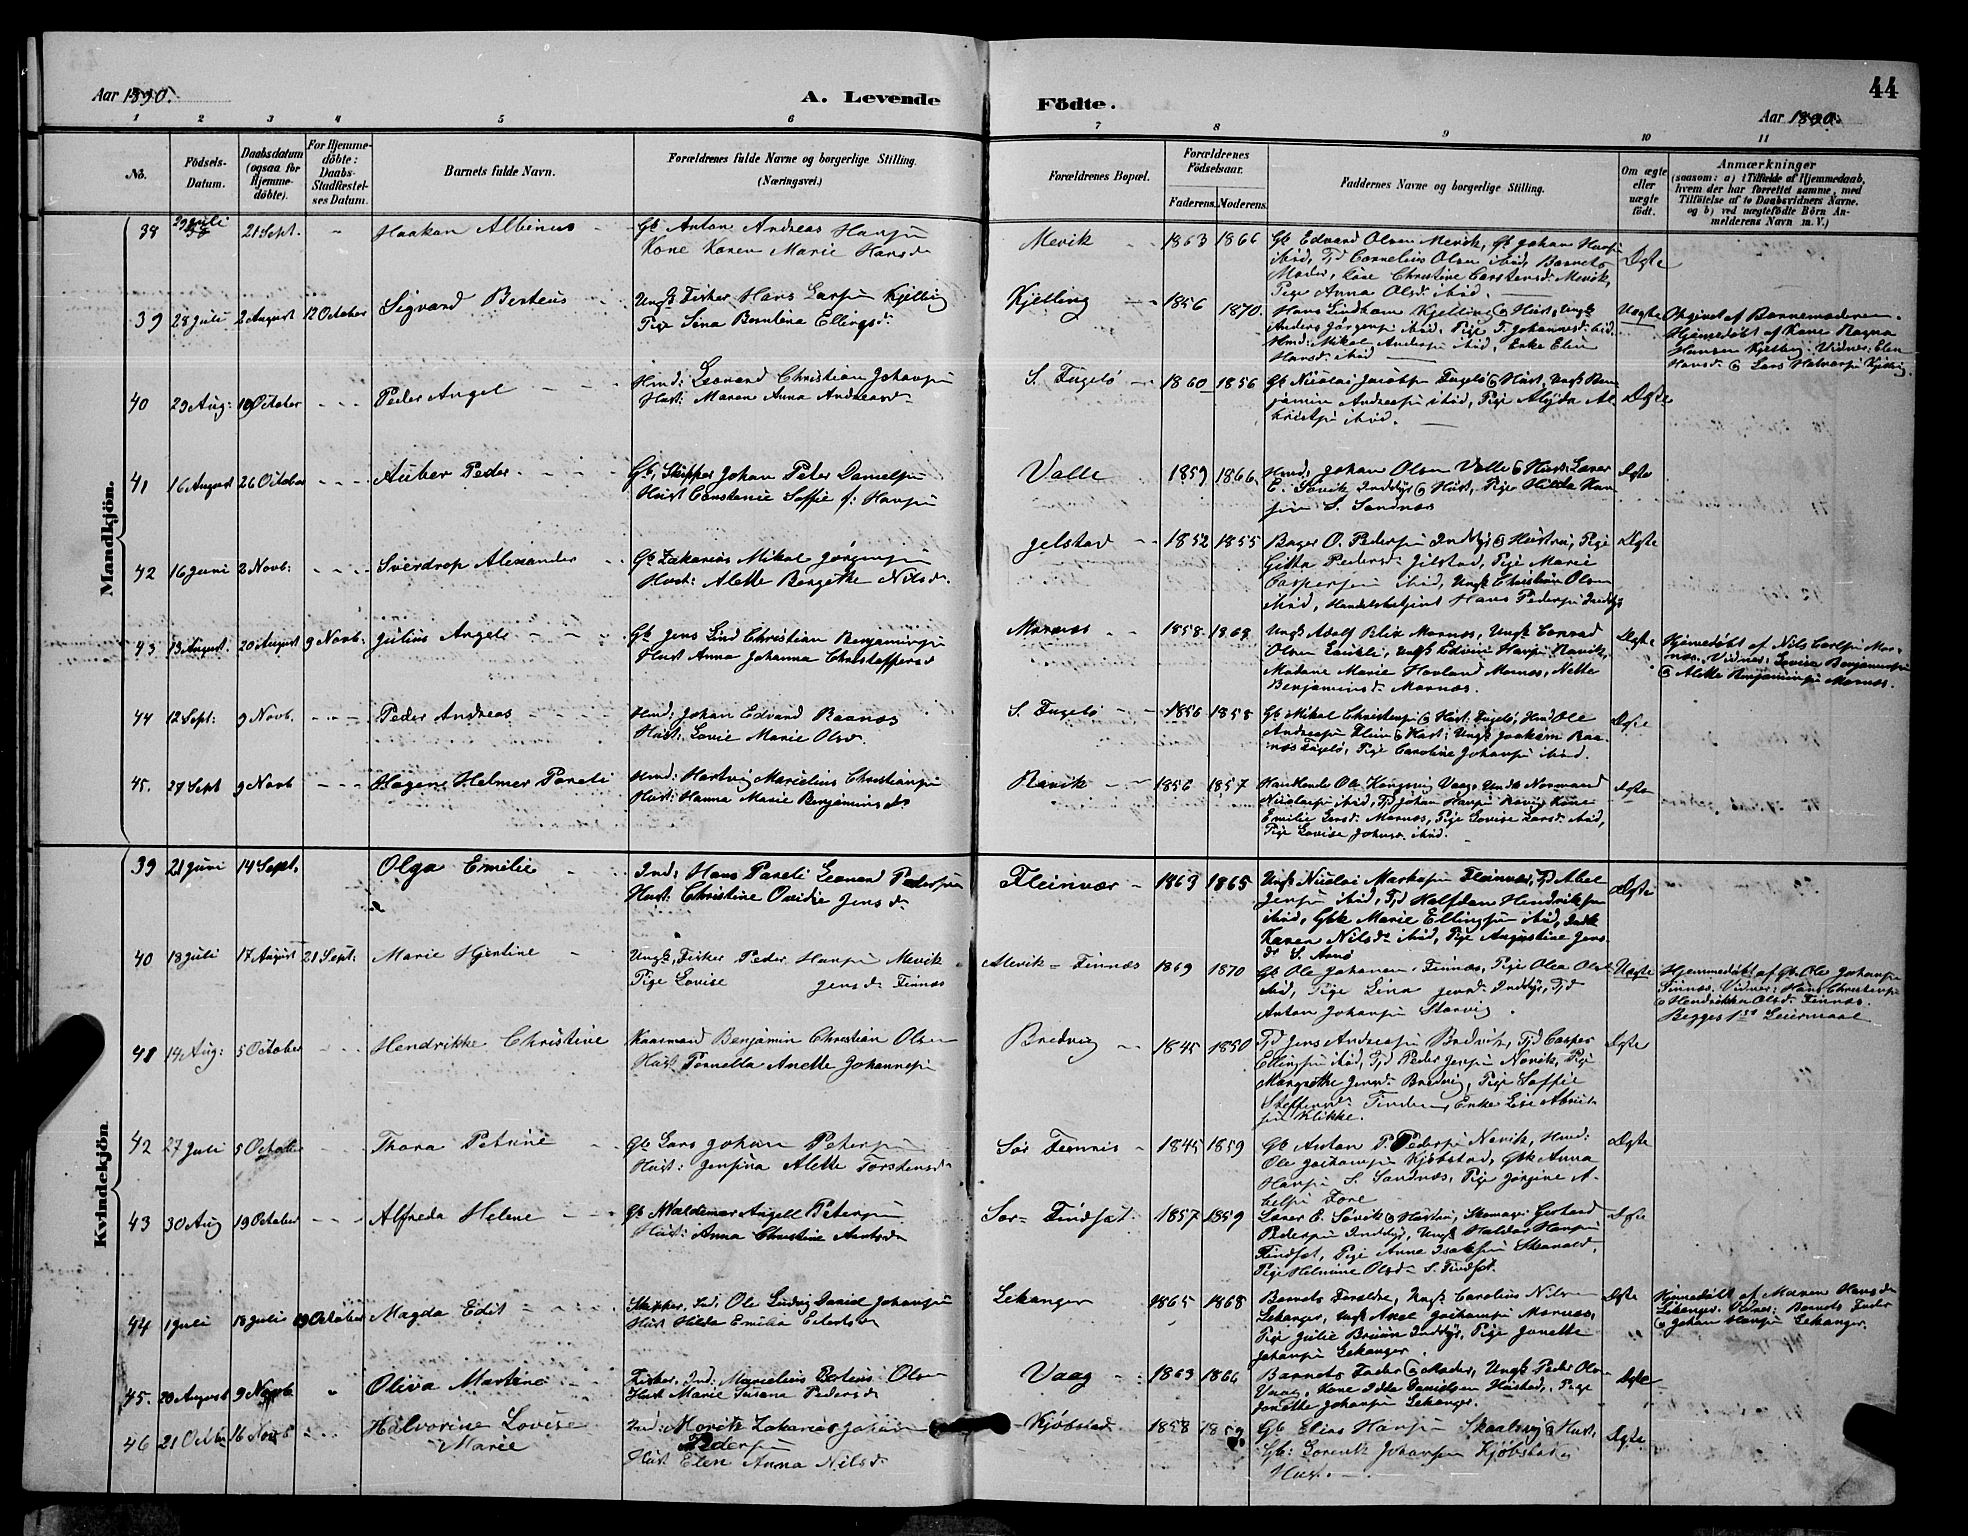 44
Aar 1890.
A. Levende
Födte.
Aar 1890.
1 2 3 4 5 6 7 8 9 10 11
No.
Födsels-Datum.
Daabsdatum (ogsaa for Hjemme-döbte).
For Hjemme-döbte: Daabs-Stadfæstel-ses Datum.
Barnets fulde Navn.
Forældrenes fulde Navne og borgerlige Stilling.
(Næringsvei.)
Forældrenes Bopæl.
Forældrenes Födselsaar.
Faderens. Moderens.
Faddernes Navne og borgerlige Stilling.
Om ægte eller uægte födt.
Anmærkninger
(saasom: a) i Tilfælde af Hjemmedaab,
hvem der har forrettet samme, med
Tilföielse af to Daabsvidners Navne.
og b) ved uægtefödte Börn An-
melderens Navn m. V.)
Mandkjön.
38 Juli 21 Sept. Haakon Albinus
Gb Anton Andreas Hansen
Kone Karen Marie Hansd
Mevik 1863 1866
Gb Edvard Olsen Mevik, Gb Johan Hansen
ibid, Tjd Cornelius Olsen ibid, Barnets
Moder, Christine Carstensd. Mevik,
Pige Anna Olsd. ibid.
Ægte
39 28 Juli 2 August 12 October Sigvard Berteus
Ungk. Fisker Hans Larsen Kjelling
Pige Sina Berntina Ellingsd.
Kjelling 1856 1870.
Hans Lindham Kjelling & Hust, Ungk
Anders Jørgensen ibid, Pige T. Johannesd. ibid.
Hmd: Mikal Andersen ibid, Enke Elen
Hansd. ibid
Uægte
Opgivet af Barnemoderen.
Hjemmedøbt af Kone Ragna
Hansen Kjelling. Vidner: Elen
Hansd. & Lars Halvorsen Kjelling.
40 29 Aug: 10 October Peder Angel
Hmd: Leonard Christian Johansen
Hust: Maren Anna Andreasd
S. Fugelø 1860 1856
Gb Nicolai Jacobsen Fugelø & Hust, Ungk Ben-
jamin Andreasen ibid, Pige Alida Al-
brigtsen ibid.
Ægte
41 16 August 26 October Auber Peder
Gb, Skipper Johan Peter Danielsen
Hust Constanse Soffie f: Hansen
Valle 1859 1866
Hmd: Johan Olsen Valle & Hust, Lærer
E. Søvik Inddyr & Hust, Pige Hilda Han-
sen S. Sandnæs
Ægte
42 16 Juni 2 Novb: Sverdrop Alexander
Gb Zakarias Mikal Jørgensen
Hust: Alette Bergethe Nilsd.
Jelstad 1852 1855
Bager O. Pedersen Inddyr & Hustru, Pige
Gitta Pedersd. Gilstad, Pige Marie
Caspersen ibid, Ungk Christian Olsen
ibid, Handelsbetjent Hans Pedersen Inddyr
Ægte
43 13 August. 20 August 9 Novb: Julius Angel
Gb Jens Lind Christian Benjaminsen
Hust Anna Johanna Christoffersd
Mornæs 1858 1869
Ungk Adolf Blix Mornæs, Ungk Conrad
Olsen, Ungk Edvin Hansen Ravik,
Madame Marie Hovland Mornæs, Nette
Benjaminsd. Mornæs.
Ægte
Hjemmedøbt af Nils Carlsen Mor-
næs. Vidner: Lovise Benjaminsen
& Alette Benjaminsen Mornæs.
44 12 Sept: 9 Novb. Peder Andreas
Hmd: Johan Edvard Raanæs
Hust. Lovie Marie Olsd.
S. Fugelø 1856 1858
Gb Mikal Christensen & Hust: Fugelø, Hmd Ole
Andreasen Flein & Hust: Ungk Joakim Raa-
næs Fugelø, Pige Caroline Johansen ibid.
Ægte
45. 27 Sept 9 Novb Hagen Helmer Pareli
Hmd: Hartvig Marselius Christiansen
Hust: Hanna Marie Benjaminsd.
Ravik 1856 1857
Ole Kongsvig Vaag, Normand
Nicolaisen ibid, Tjd Johan Hansen Ravig, Kone
Emilie Larsd. Mornæs, Pige Lovise Larsd. ibid,
Pige Lovise Johnsd. ibid.
Ægte
Kvindekjön
39 21 Juni 14 Sept. Olga Emilie
Ind: Hans Pareli Leonard Pedersen
Hust: Christine Ovidie Jensd.
Fleinvær 1863 1865
Ungk Nicolai Markusen Fleinvær, Tjd Abel
Jensen ibid, Tjd Halfdan Hendriksen
ibid, Gbk Marie Ellingsen ibid, Indk
Karen Nilsd. ibid, Pige Augustine Jens-
d. S. Arnø
Ægte
40 18 Juli 17 August 21 Sept. Marie Hjertine
Ungk, Fisker Peder Hansen Mevik
Pige Lovise Jensd. Finnæs
Mevik - Finnæs 1869 1870
Gb Ole Johansen Finnæs, Pige Olea Olsd
ibid, Pige Lina Jensd. Inddyr, Tjd
Anton Johansen Storvig.
Uægte
Hjemmedøbt af Gb. Ole Johansen
Finnæs. Vidner: Hans Christensen
& Hendrikka Olsd. Finnæs.
Begges 1ste Leiermaal
41 14 Aug: 5 October Hendrikke Christine
Kaarmand Benjamin Christian Olsen
Hust Pernella Anette Johannesen
Bredvig 1845 1850
Tjd Jens Andreasen Bredvik, Tjd Casper
Ellingsen ibid, Tjd Peder Jensen Novik, Pige
Margrethe Jensd. Bredvig, Pige Soffie
Steffensd. Tinden, Enke Lise Abra-
Klikke.
Ægte
42 27 Juli 5 October Thora Petrine
Gb Lars Johan Petersen
Hust: Jensina Alette Torstensd.
Sør Femnis 1845 1859
Gb Anton P. Pedersen Navik, Hmd:
Ole Joakimsen Kjøbstad, Gbk Anna
Hansen S. Sandnæs, Pige Jørgine A-
belsen Fore
Ægte
43 30 Aug 19 October Alfreda Helene
Gb Waldemar Angell Petersen
Hust: Anna Christine Arntsd
Sør-Findset 1857 1859
Lærer E. Søvik & Hustru, Skomager Gerhard
Pedersen Inddyr, Ungk Haldor Hansen
Findset, Pige Anne Isaksen Skavold,
Pige Helmine Olsd. S. Findset.
Ægte
44 1 Juli 18 Juli 19 October Magda Edit
Skipper, Ind, Ole Ludvig Daniel Johansen
Hust Hilda Emilia Edertsd
Lekanger 1865 1868
Barnets Forældre, Ungk Carolius Nilsen
Lekanger, Ungk Axel Joakimsen Mornæs,
Pige Julie Bruun Inddyr, Pige Janette
Johansen Lekanger.
Ægte
Hjemmedøbt af Maren Hansd
Lekanger. Vidner: Barnets Fader
& Johan Hansen Lekanger.
45. 20 August 9 Novb Oliva Martine
Fisker, Ind: Marselius Berteus Olsen
Hust Marie Susana Pedersd.
Vaag 1863 1866
Barnets Fader & Moder, Ungk Peder Olsen
Vaag, Kone Ida Danielsen Hustad, Pige
Janette Johansen Lekanger.
Ægte
46 21 Octbr 16 Novb Halvorine Lovise
Marie
Ind: Moritz Zakarias Johan
Pedersen
Hust Elen Anna Nilsd.
Kjøbstad 1858 1859
Gb Elias Hansen Skaalsvig & Hust,
Gb: Lorentz Johansen Kjøbstad &
Hust.
Ægte